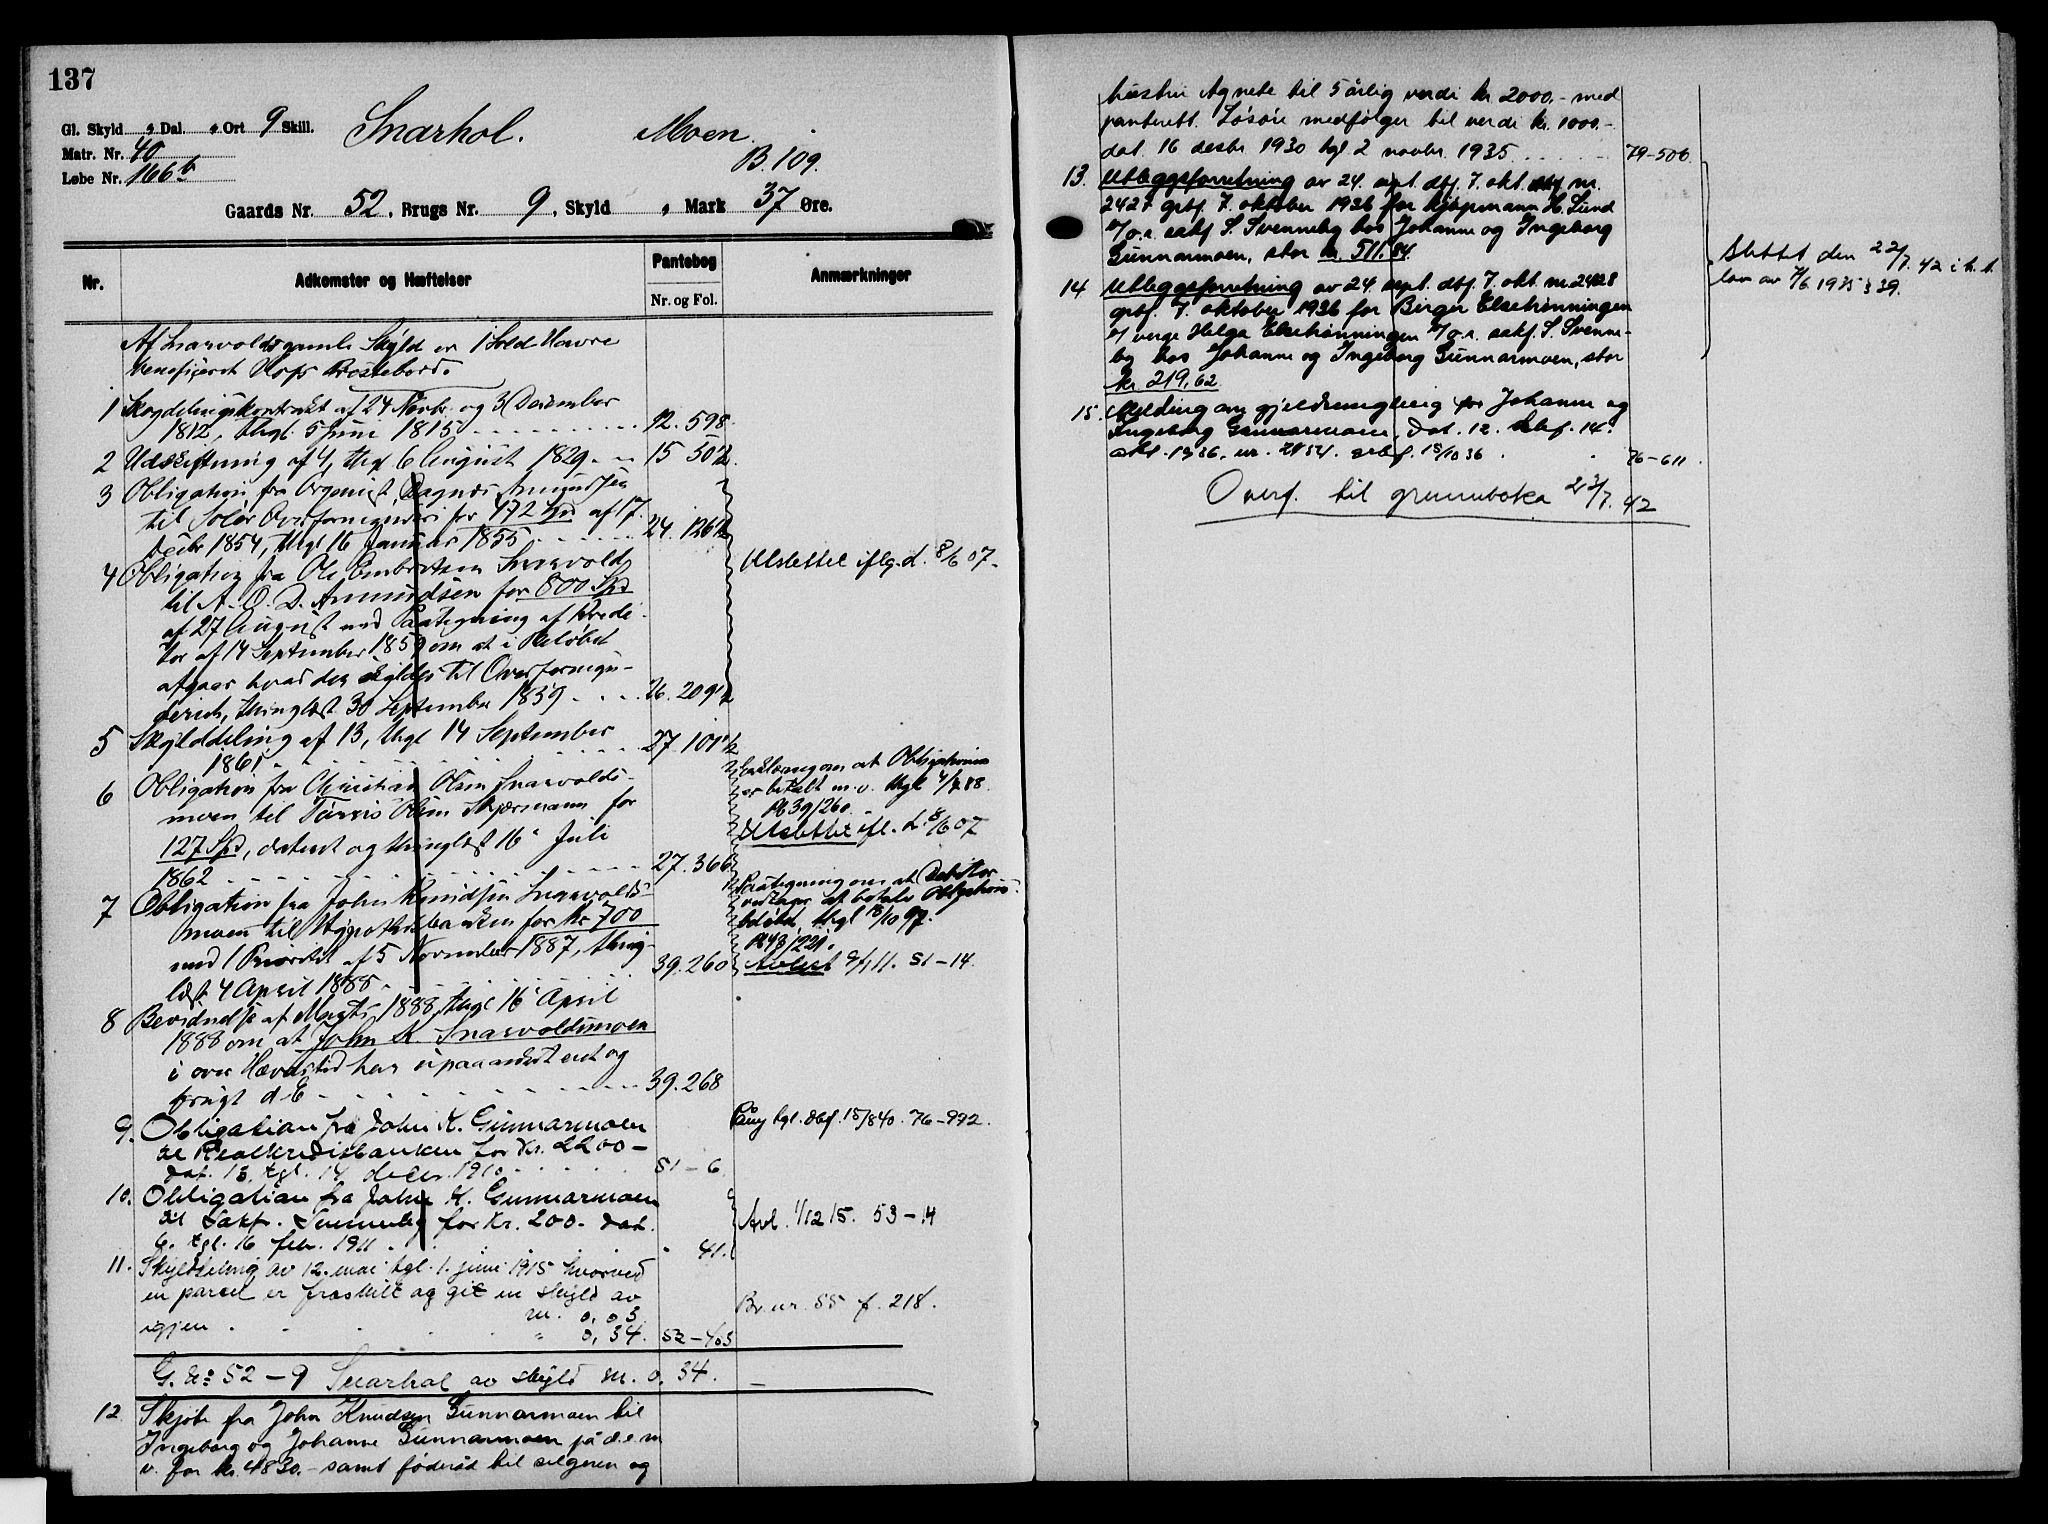 137
Gl. Skyld „ Dal. „ Ort 9 Skill. Snarhol. Moen.
Matr. Nr. 40 B. 109.
Løbe Nr. 166b
Gaards Nr. 52, Brugs Nr. 9, Skyld „ Mark 37 Øre.
Nr. Adkomster og Hæftelser Pantebog Anmærkninger
Nr. og Fol.
Af Snarvolds gamle Skyld er 1 Sold Havre
beneficeret Hofs Præstebord.
1 Skyldelingskontrakt af 24 Novbr. og 3 December
1812, thgl. 5 Juni 1815 12. 598.
2 Udskiftning af 4, thgl 6 August 1829. 15 502.
3 Obligation fra Organist Magnus Amundsen
til Solør Overformynderi for 472 Spd af 17.
Decbr 1854, thgl 16 Januar 1855 24. 126½
4 Obligation fra Ole Embretsen Snarvold
til A. O. D. Amundsen for 800 Spd
af 27 August med Paategning af Kredi-
tor af 14 September 1859 om at i Beløbet
afgaar hvad der skyldes til Overformyn-
deriet, thinglæst 30 September 1859 26. 209½
Udslettet iflg. d. 8/6 07.
5 Skylddeling af 13, thgl 14 September
1861 27. 101½
6 Obligation fra Christian Olsen Snarvolds-
moen til Olsen Skjærmann for
127 Spd, dateret og thinglæst 16 Juli
1862 27. 366
Erklæring om at Obligationen
er betalt m.v. thgl 4/4 88.
Pb 39/260.
Udslettet ifl. d. 8/6 07
7 Obligation fra John Knudsen Snarvolds-
moen til Hypothekbanken for Kr 700
med 1 Prioritet af 5 November 1887, thing-
læst 4 April 1888. 39. 260
Paategning om at Debitor
vedtager at betale Obligations-
thgl 18/10 97.
Pb 43/221.
Avlest 9/1 11. 51-14.
8 Bevidnelse af Marts 1888, thgl 16 April
1888 om at John K. Snarvoldsmoen
i over Hævdstid har upaaanket eiet og
brugt d. E 39. 268
9. Obligation fra John K. Gunnarmoen
til Realkreditbanken for Kr. 2200-
dat. 13. tgl. 14 decbr. 1910 51-6.
Påny tgl. dbf. 15/8 40. 76-992.
10. Obligation fra John K. Gunnarmoen
til Sakf. Svenneby for Kr. 200.- dat.
6. tgl. 16 febr. 1911 " 41.
Avl. 1/12 15. 53-14
11. Skylddeling av 12. mai tgl. 1. juni 1915 hvorved
en parcel er fraskilt og git en skyld av
m. 0,03. Br. nr. 55 f. 218.
igjen " 0,34. 52-403
G. No 52-9 Snarhol av skyld m. 0.34. —
12. Skjøte fra John Knudsen Gunnarmoen til
Ingeborg og Johanne Gunnarmoen på d.e. m
v. for kr. 4830.- samt føderåd til selgeren og
hustru Agnete til 5 årlig verdi kr 2000.- med
panterett. Løsøre medfølger til verdi kr. 1000.-
dat. 16 desbr 1930 tgl 2 novbr. 1935 79-506.
13. Utleggsforretning av 24. sept. dbf. 7. okt. nr.
2427 grbf. 7. oktober 1936 for kjøpmann H. Lund
v/o.r. sakf S. Svenneby hos Johanne og Ingeborg
Gunnarmoen, stor kr. 511.84.
14 Utleggsforretning av 24. sept. dbf. 7. okt. nr. 2428
grbf. 7. oktober 1936 for Birger Elsetrønningen
v/ verge Helga Elsetrønningen v/o.r. sakf. S. Svenne-
by hos Johanne og Ingeborg Gunnarmoen, stor
kr. 219,62.
Slettet den 22/7. 42 i h. t.
lov av 7/6 1935 § 39.
15. Melding om gjeldsmegling for Johanne og
Ingeborg Gunnarmoen, dat. 12. dbf. 14.
okt. 1936, nr. 2454. grbf. 15/10 36. 76-611.
Overf. til grunnboka 22/7. 42